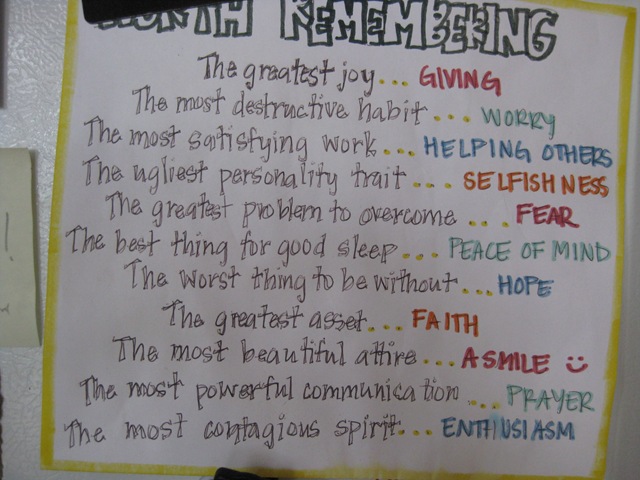 WORTH REMEMBERING
The greatest joy... GIVING
The most destructive habit... WORRY
The most satisfying work... HELPING OTHERS
The ugliest personality trait... SELFISHNESS
The greatest problem to overcome... FEAR
The best thing for good sleep... PEACE OF MIND
The worst thing to be without... HOPE
The greatest asset... FAITH
The most beautiful attire... A SMILE
The most powerful communication... PRAYER
The most contagious spirit... ENTHUSIASM